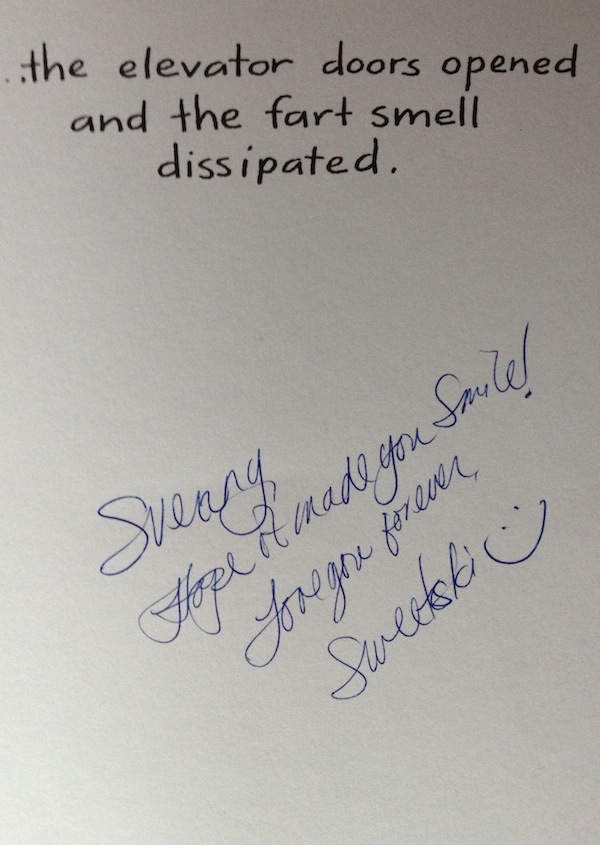 ...the elevator doors opened
and the fart smell
dissipated.
Svenny,
Hope it made you Smile!
Love you forever,
Sweetski